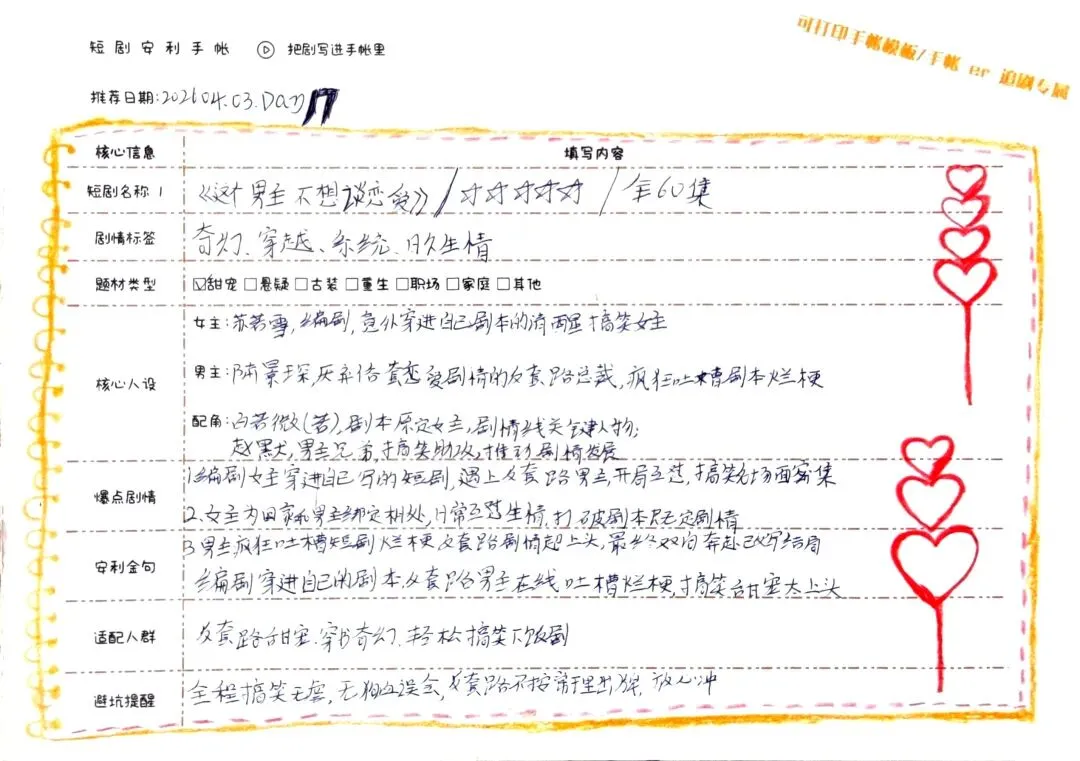 可打印手帐模板/手帐 er 追剧专属
短剧安利手帐 把剧写进手帐里
推荐日期:2026 04.03.Day 17
核心信息 填写内容
短剧名称 1 《这个男主不想谈恋爱》/☆☆☆☆☆/全60集
剧情标签 奇幻、穿越、系统、日久生情
题材类型 ☑甜宠□悬疑□古装□重生□职场□家庭□其他
核心人设
女主:苏若雪,编剧,意外穿进自己剧本的清醒搞笑女主
男主:陆景琛,厌弃俗套恋爱剧情的反套路总裁,疯狂吐槽剧本烂梗
配角:白若微(若),剧本原定女主,剧情线关键人物;
赵黑犬,男主兄弟,搞笑助攻,推动剧情发展
爆点剧情
1.编剧女主穿进自己写的短剧,遇上反套路男主,开局互怼,搞笑名场面密集
2.女主为回家和男主绑定相处,日常互怼生情,打破剧本既定剧情
3.男主疯狂吐槽短剧烂梗,反套路剧情超上头,最终双向奔赴改写结局
安利金句
编剧穿进自己的剧本,反套路男主在线吐槽烂梗,搞笑甜宠太上头
适配人群 反套路甜宠、穿书奇幻、轻松搞笑下饭剧
避坑提醒 全程搞笑无虐,无狗血误会,反套路不按常理出牌,放心冲